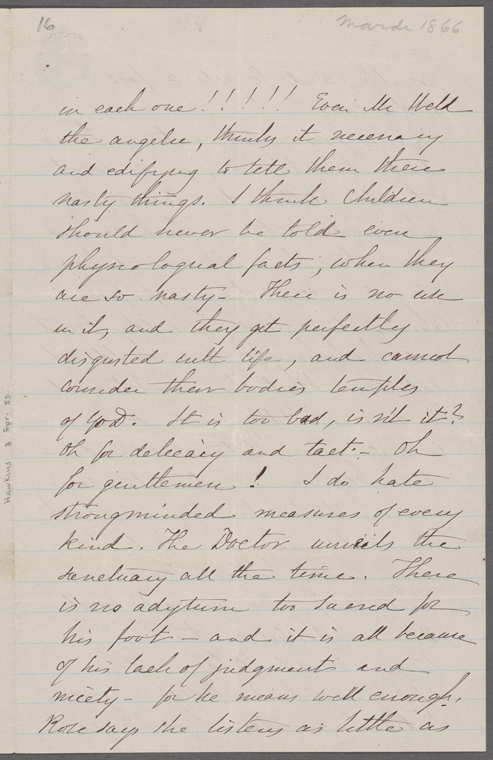 16
March 1866
in each one!!!!!! Even Mr Weld
the angelic, thinks it necessary
and edifying to tell them these
nasty things. I think children
should never be told even
physiological facts, when they
are so nasty - There is no use
in it, and they get perfectly
disgusted with life, and cannot
consider their bodies temples
of God. It is too bad, isn't it?
Oh for delicacy and tact. - Oh
for gentlemen! I do hate
strongminded measures of every
kind. The Doctor unveils the
sanctuary all the time. There
is no adytum too sacred for
his foot - and it is all because
of his lack of judgment and
nicety - for he means well enough.
Rose says she listens as little as
Hawkins 3 Apr. 53.